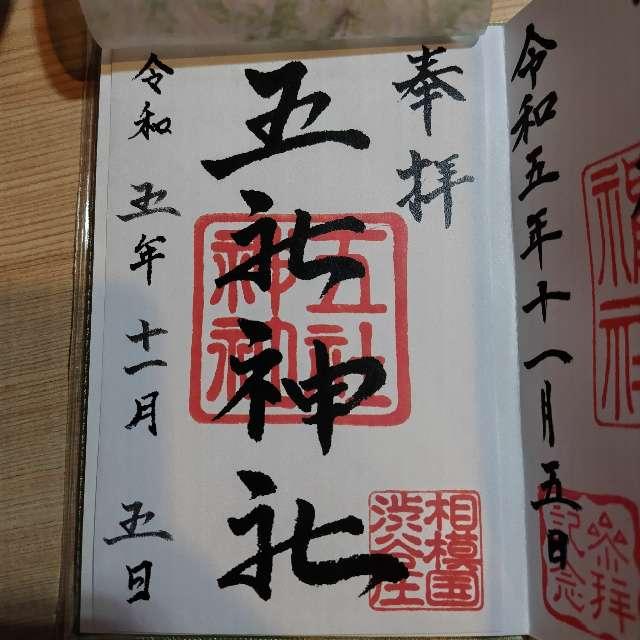 令和五年十一月五日
参拝
記念
奉拝
五社神社
五社
神社
相模国
渋谷庄
令和五年十一月五日